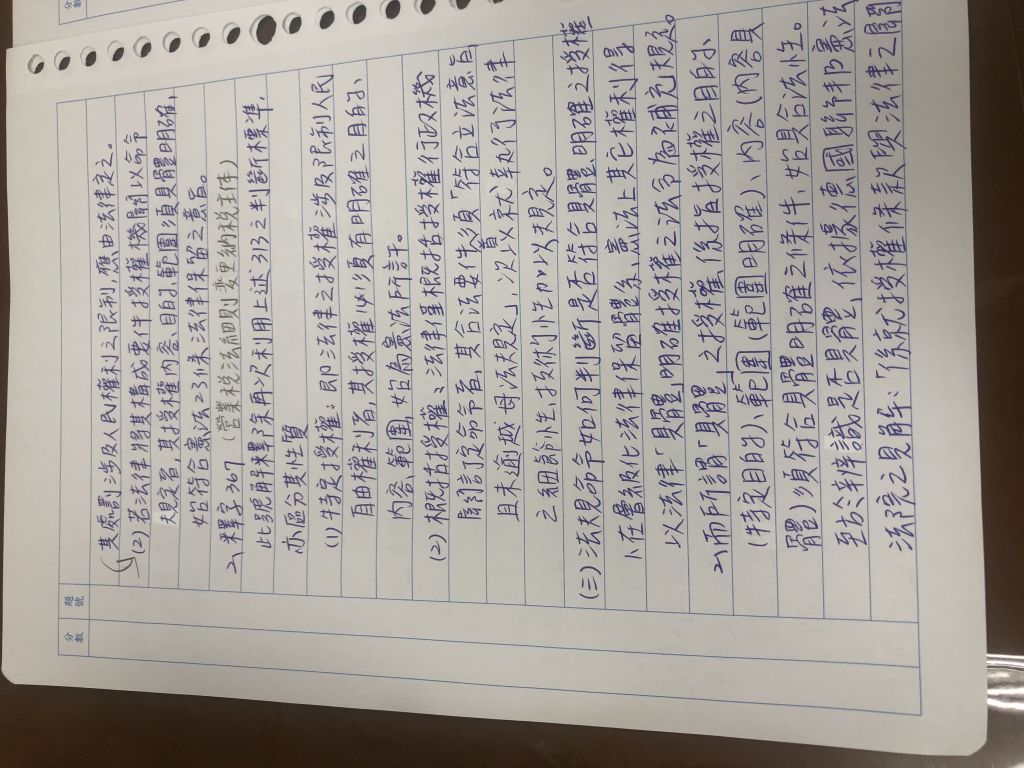 分數
題號
分數
其處罰涉及人民權利之限制，應由法律定之。
(2) 若法律將其構成要件授權機關以命令
規定者，其授權內容、目的、範圍須具體明確，
始符合憲法23條法律保留之意旨。
2、釋字367 (營業稅法細則變更納稅主体)
此號解釋除再次利用上述313之判斷標準，
亦區分其性質
(1) 特定授權：即法律之授權涉及限制人民
自由權利者，其授權必須有明確之目的、
內容、範圍，始為憲法所許。
(2) 概括授權：法律僅概括授權行政機
關訂定命令者，其合法要件須「符合立法意旨
且未逾越母法規定」，次以就執行法律
之細節性、技術性加以規定。
(三) 法規命令如何判斷是否符合具體明確之授權
1、在層級化法律保留體系，憲法上其它權利得
以法律「具體」明確授權之法令為補充規定。
2、而所謂「具體」之授權，係指授權之目的、
(特定目的)、範圍(範圍明確)、內容(內容具
體)須符合具體明確之條件，始具合法性。
至於辨識是否具體，依據德國聯邦憲法
法院之見解：「係就授權條款與法律之關